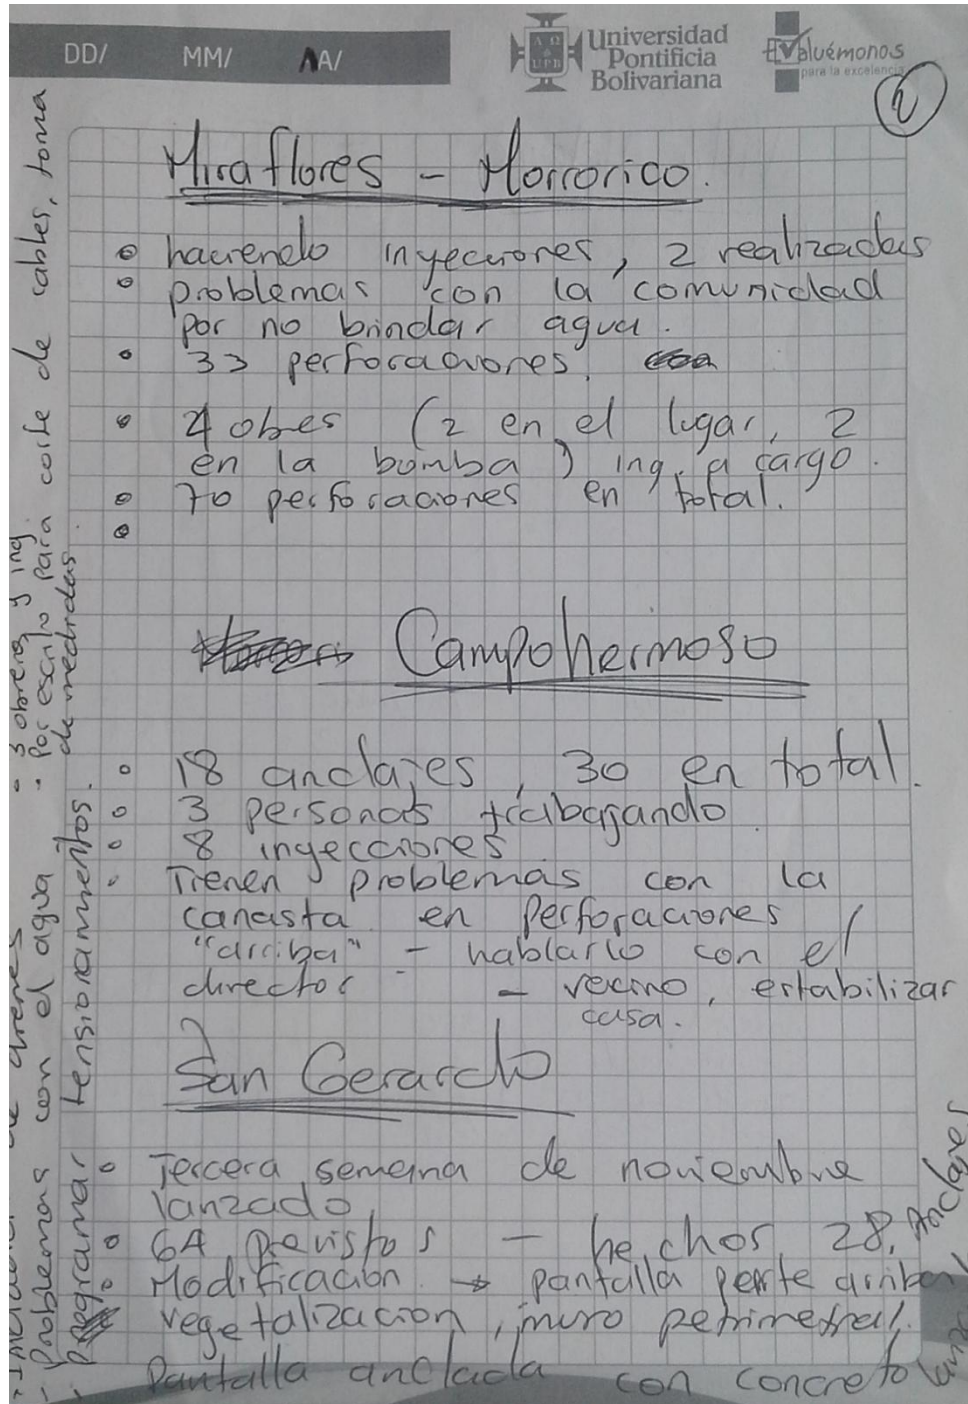 DD/ MM/ AA/
Universidad
Pontificia
Bolivariana
Evaluémonos
para la excelencia
2
Miraflores - Morrorico.
haciendo inyecciones, 2 realizadas
problemas con la comunidad
por no brindar agua.
33 perforaciones.
4 obres (2 en el lugar, 2
en la bomba) ing. a cargo.
70 perforaciones en total.
Campohermoso
18 anclajes, 30 en total.
3 personas trabajando.
8 inyecciones
Tienen problemas con la
canasta en perforaciones
"arriba" - hablarlo con el
director - vecino, estabilizar
casa.
San Gerardo
Tercera semana de noviembre
lanzado
64 previstos - hechos 28, Anclajes
Modificación → pantalla parte arriba,
vegetalización, muro perimetral.
Pantalla anclada con concreto
3 obreros y ing
Por escrito para corte de cables, toma
de medidas
de drenes
- problemas con el agua
Programar tensionamientos.